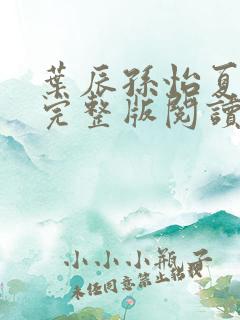 葉辰孫怡夏
完整版閱讀
小小小瓶子
未經同意禁止轉載